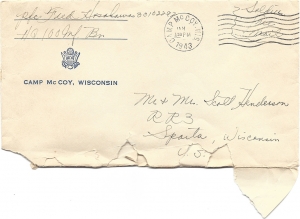 Pfc Fred Hosokawa
Hq 100 Inf Bn
CAMP McCOY, WIS.
1943
CAMP McCOY, WISCONSIN
Mr & Mrs. Scott Henderson
RR3
Sparta, Wisconsin
U.S.